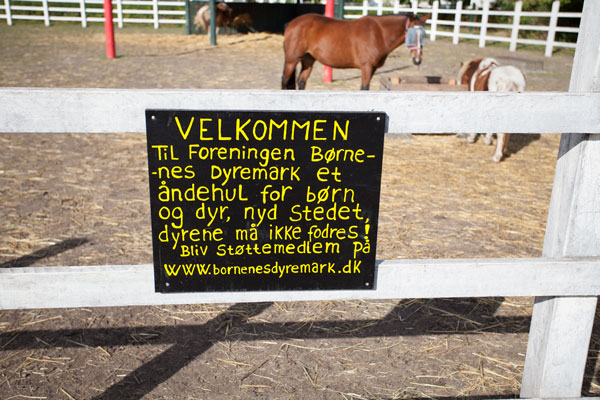 VELKOMMEN
Til Foreningen Børne-
-nes Dyremark et
åndehul for børn
og dyr, nyd Stedet,
dyrene må ikke fodres!
Bliv Støttemedlem på
www.bornenesdyremark.dk